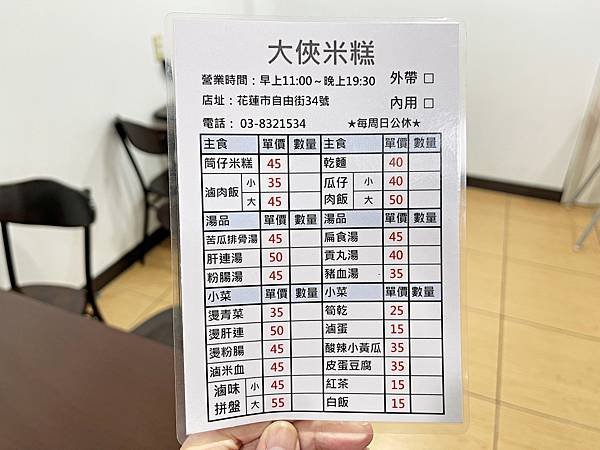 大俠米糕
營業時間：早上11:00～晚上19:30 外帶 □
店址：花蓮市自由街34號 內用 □
電話： 03-8321534 ★每周日公休★
主食 單價 數量 主食 單價 數量
筒仔米糕 45 乾麵 40
滷肉飯 小 35 瓜仔肉飯 小 40
大 45 大 50
湯品 單價 數量 湯品 單價 數量
苦瓜排骨湯 45 扁食湯 45
肝連湯 50 貢丸湯 40
粉腸湯 45 豬血湯 35
小菜 單價 數量 小菜 單價 數量
燙青菜 35 筍乾 25
燙肝連 50 滷蛋 15
燙粉腸 45 酸辣小黃瓜 35
滷米血 45 皮蛋豆腐 35
滷味拼盤 小 45 紅茶 15
大 55 白飯 15